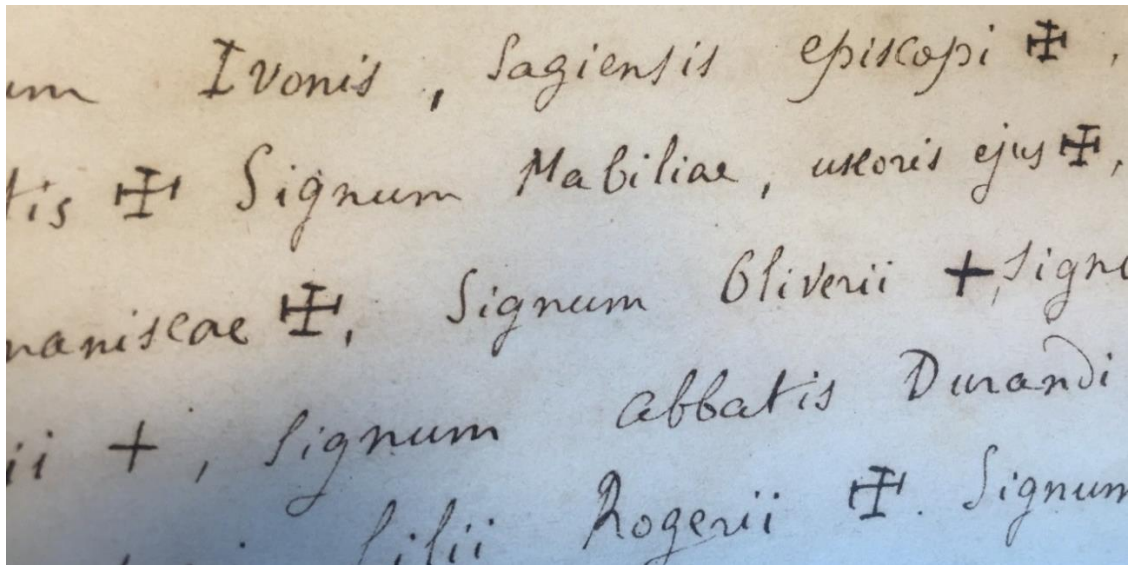 um Ivonis, Sagiensis episcopi ✠,
tis ✠ Signum Mabiliae, uxoris ejus ✠,
maniscae ✠, Signum Oliverii +, Sign
ii +, Signum abbatis Durandi
filii Rogerii ✠. Signum